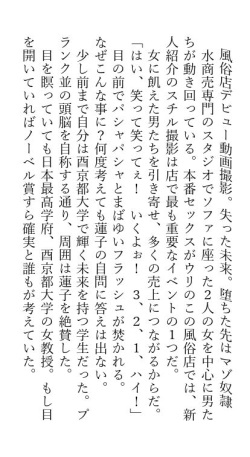 風俗店デビュー動画撮影。失った未来。堕ちた先はマゾ奴隷
　水商売専門のスタジオでソファに座った２人の女を中心に男た
ちが動き回っている。本番セックスがウリのこの風俗店では、新
人紹介のスチル撮影は店で最も重要なイベントの１つだ。
　女に飢えた男たちを引き寄せ、多くの売上につながるからだ。
「はい、笑って笑ってぇ！　いくよぉ！　３、２、１、ハイ！」
　目の前でバシャバシャとまばゆいフラッシュが焚かれる。
　なぜこんな事に？何度考えても蓮子の自問に答えは出ない。
　少し前まで自分は酉京都大学で輝く未来を持つ学生だった。プ
ランク並の頭脳を自称する通り、周囲は蓮子を絶賛した。
　目を瞑っていても日本最高学府、酉京都大学の女教授。もし目
を開いていればノーベル賞すら確実と誰もが考えていた。